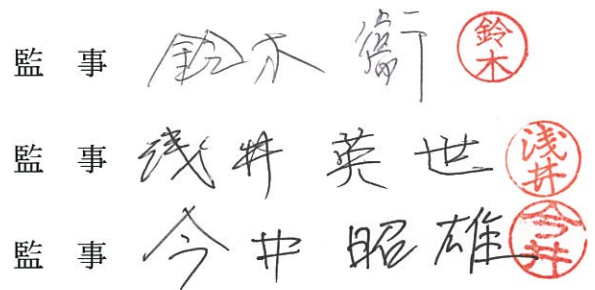 監事 鈴木 衞 鈴木
監事 浅井 英世 浅井
監事 今井 昭雄 今井